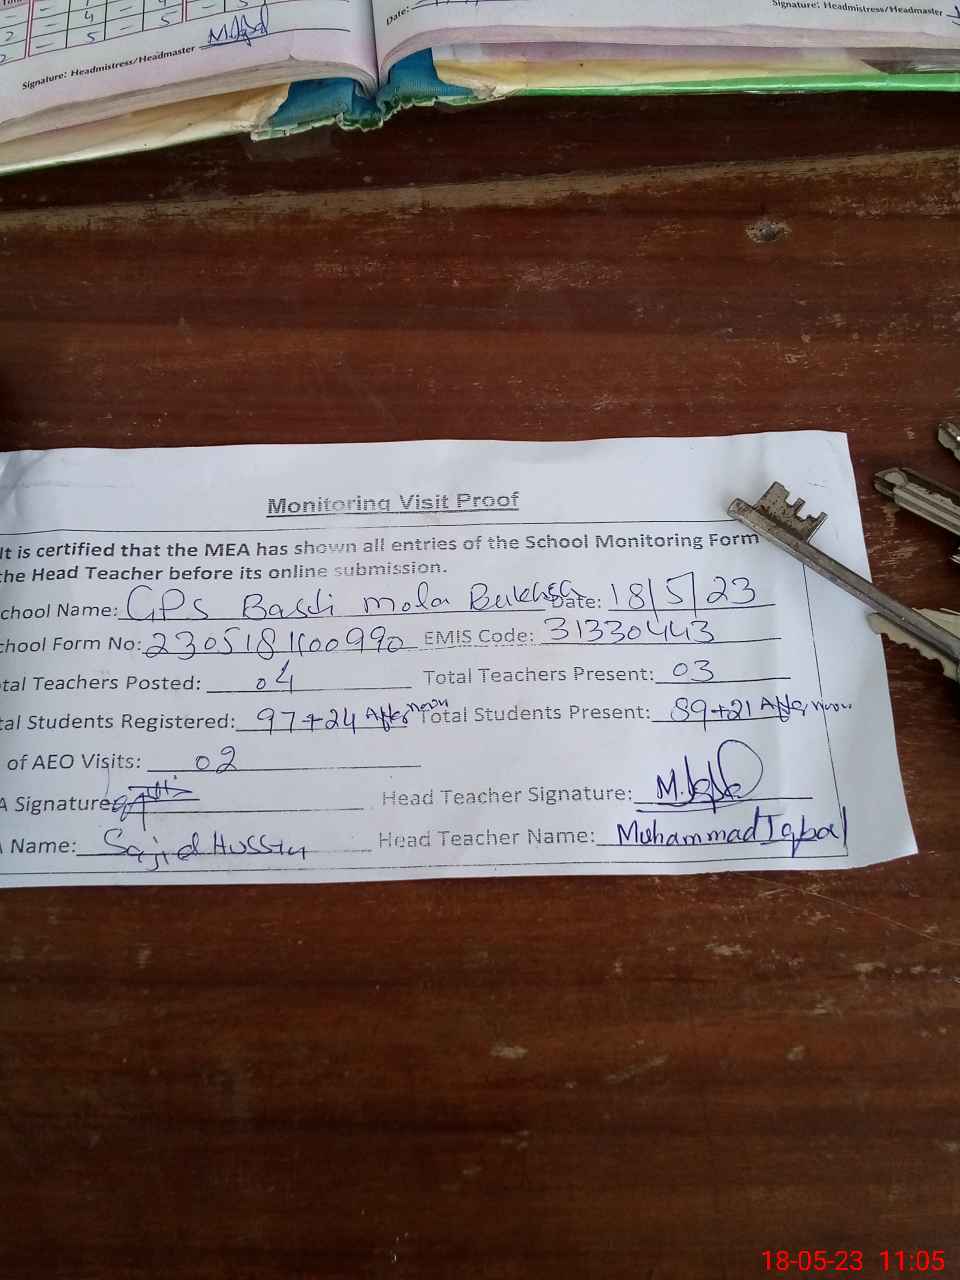 Signature: Headmistress/Headmaster M.Iqbal
Date:
Signature: Headmistress/Headmaster
Monitoring Visit Proof
It is certified that the MEA has shown all entries of the School Monitoring Form
the Head Teacher before its online submission.
chool Name: GPS Basti mola Bukhsh Date: 18/5/23
chool Form No: 230518400990 EMIS Code: 31330443
tal Teachers Posted: 04 Total Teachers Present: 03
tal Students Registered: 97+24 Afternoon Total Students Present: 89+21 Afternoon
of AEO Visits: 02
A Signature: Head Teacher Signature: M.Iqbal
Name: Sajid Hussin Head Teacher Name: Muhammad Iqbal
18-05-23 11:05